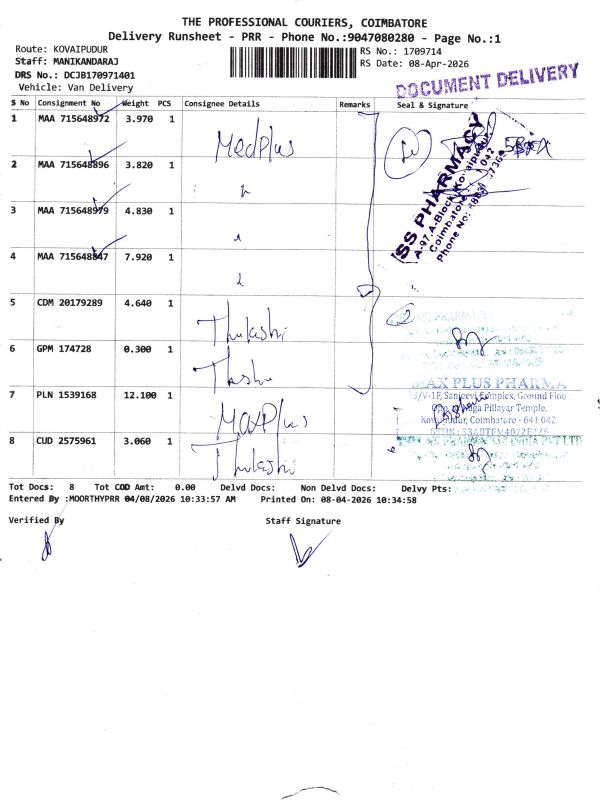 THE PROFESSIONAL COURIERS, COIMBATORE
Delivery Runsheet - PRR - Phone No.:9047080280 - Page No.:1
Route: KOVAIPUDUR
RS No.: 1709714
Staff: MANIKANDARAJ
RS Date: 08-Apr-2026
DRS No.: DCJB170971401
Vehicle: Van Delivery
DOCUMENT DELIVERY
S No Consignment No Weight PCS Consignee Details Remarks Seal & Signature
1 MAA 715648972 3.970 1 Medplus
2 MAA 715648896 3.820 1
3 MAA 715648979 4.830 1
4 MAA 715648847 7.920 1
SS PHARMACY
A-97, A-Block, Kovaipudur,
Coimbatore 042
Phone No:
5 CDM 20179289 4.640 1 Thulashi
6 GPM 174728 0.300 1
7 PLN 1539168 12.100 1 MaxPlus
MAX PLUS PHARMA
3/V-1F, Sanjeevi Complex, Ground Floor
Opp. Naga Pillayar Temple,
Kovaipudur, Coimbatore - 641 042.
8 CUD 2575961 3.060 1 Thulashi
Tot Docs: 8 Tot COD Amt: 0.00 Delvd Docs: Non Delvd Docs: Delvy Pts:
Entered By :MOORTHYPRR 04/08/2026 10:33:57 AM Printed On: 08-04-2026 10:34:58
Verified By Staff Signature